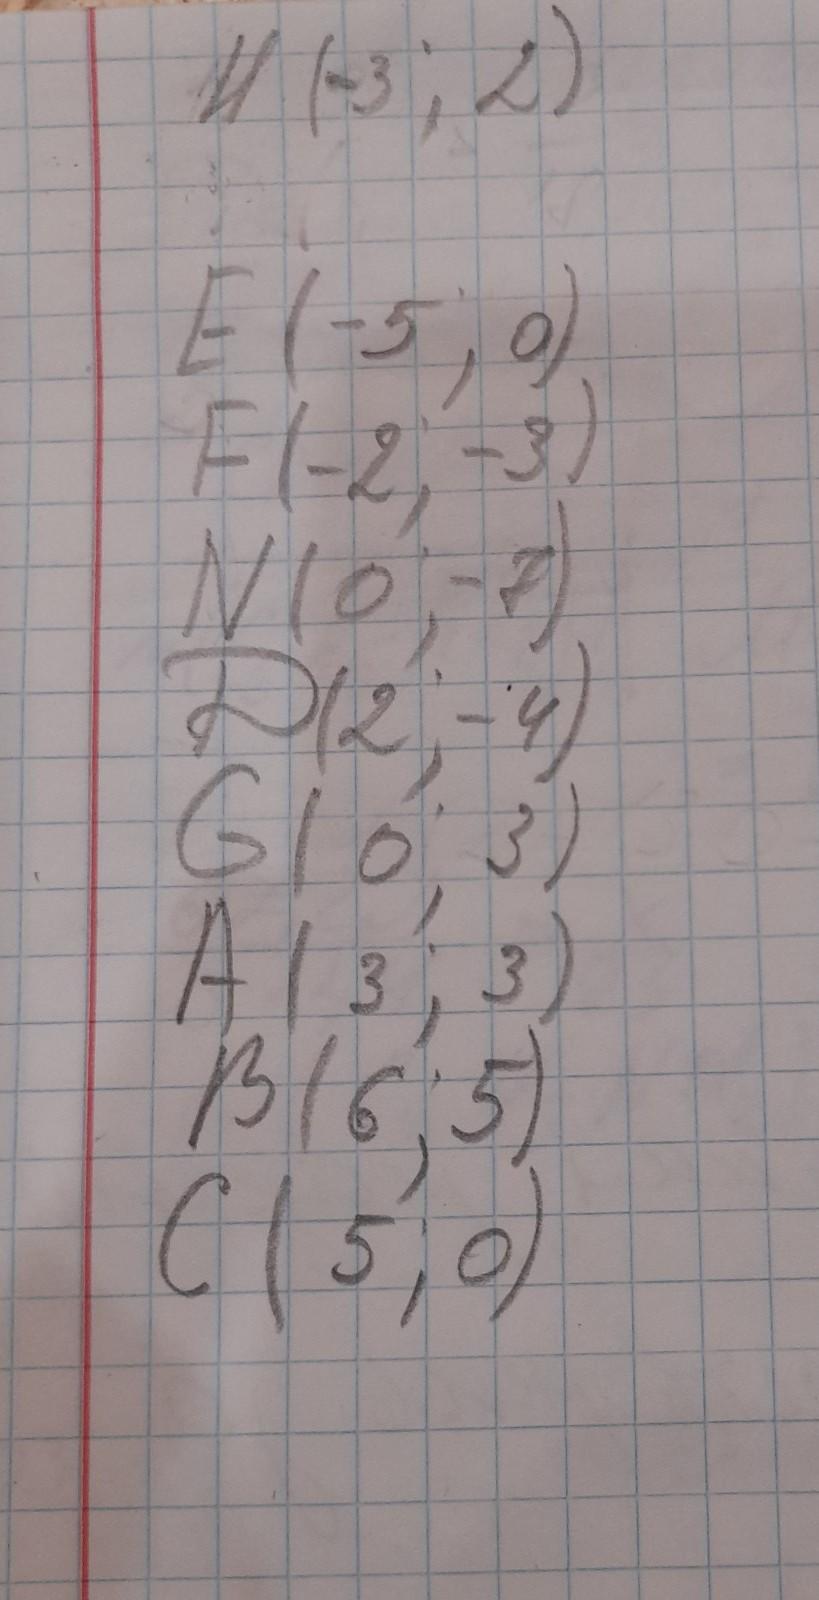 И (-3; 2)
E (-5; 0)
F (-2; -3)
N (0; -7)
D (2; -4)
G (0; 3)
A (3; 3)
B (6; 5)
C (5; 0)